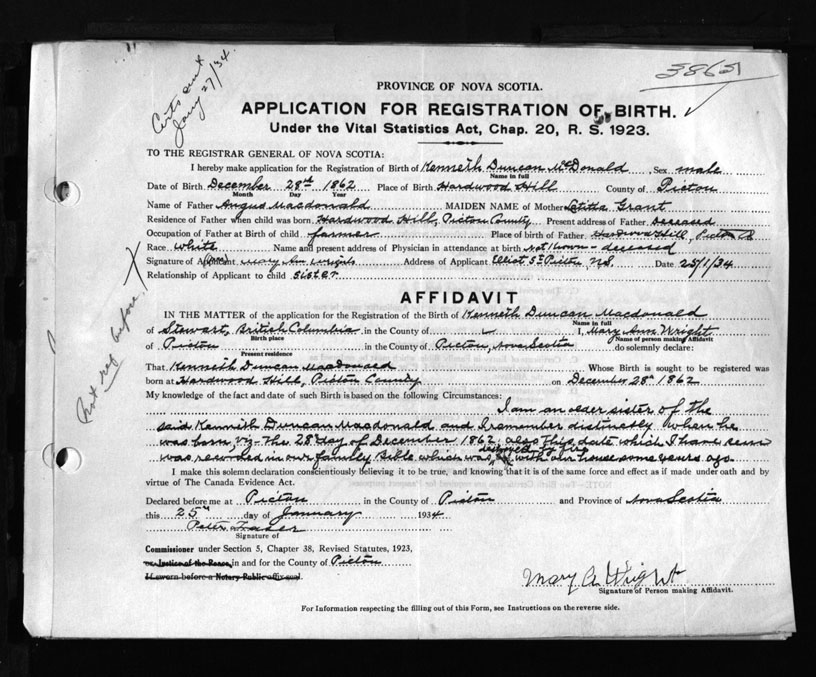 Certs sent
Jany 27/34.
38651
PROVINCE OF NOVA SCOTIA.
APPLICATION FOR REGISTRATION OF BIRTH.
Under the Vital Statistics Act, Chap. 20, R. S. 1923.
TO THE REGISTRAR GENERAL OF NOVA SCOTIA:
I hereby make application for the Registration of Birth of Kenneth Duncan McDonald Sex male
Name in full
Date of Birth December 28th 1862 Place of Birth Hardwood Hill County of Picton
Month Day Year
Name of Father Angus Macdonald MAIDEN NAME of Mother Letitia Grant
Residence of Father when child was born Hardwood Hill, Picton County Present address of Father deceased
Occupation of Father at Birth of child farmer Place of birth of Father Hardwood Hill, Picton Co
Race white Name and present address of Physician in attendance at birth not known - deceased
Signature of Applicant Mary Ann Wright Address of Applicant Elliot St Picton, N.S. Date 25/1/34
Relationship of Applicant to child sister
Not reg before
AFFIDAVIT
IN THE MATTER of the application for the Registration of the Birth of Kenneth Duncan Macdonald
Name in full
of Stewart, British Columbia in the County of I, Mary Ann Wright
Birth place Name of person making Affidavit
of Picton in the County of Picton, Nova Scotia do solemnly declare:
Present residence
That Kenneth Duncan Macdonald Whose Birth is sought to be registered was
born at Hardwood Hill, Picton County on December 28th 1862
My knowledge of the fact and date of such Birth is based on the following Circumstances:
I am an older sister of the
said Kennith Duncan Macdonald and I remember distinctly when he
was born viz- the 28th day of December 1862. also this date which I have seen
was recorded in our family Bible which was destroyed by fire with our house some years ago
I make this solemn declaration conscientiously believing it to be true, and knowing that it is of the same force and effect as if made under oath and by
virtue of The Canada Evidence Act.
Declared before me at Picton in the County of Picton and Province of Nova Scotia
this 25th day of January 1934
Peter Fraser
Signature of
Commissioner under Section 5, Chapter 38, Revised Statutes, 1923,
or Justice of the Peace, in and for the County of Picton
If sworn before a Notary Public affix seal.
Mary A Wright
Signature of Person making Affidavit.
For Information respecting the filling out of this Form, see Instructions on the reverse side.